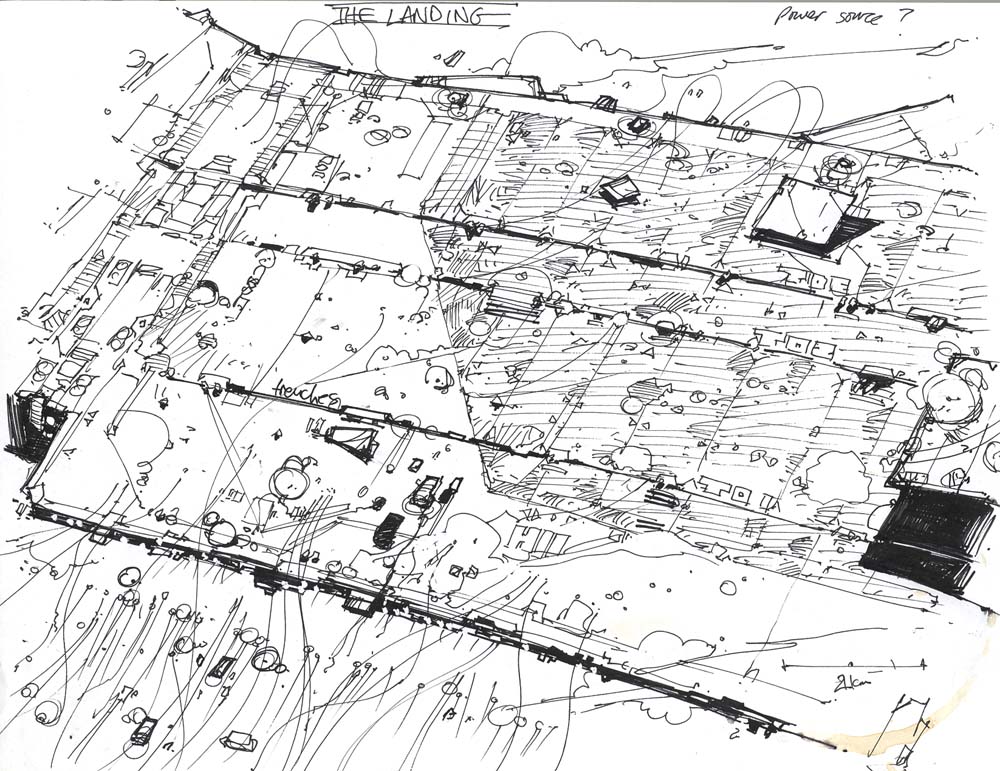 THE LANDING
Power source ?
trenches